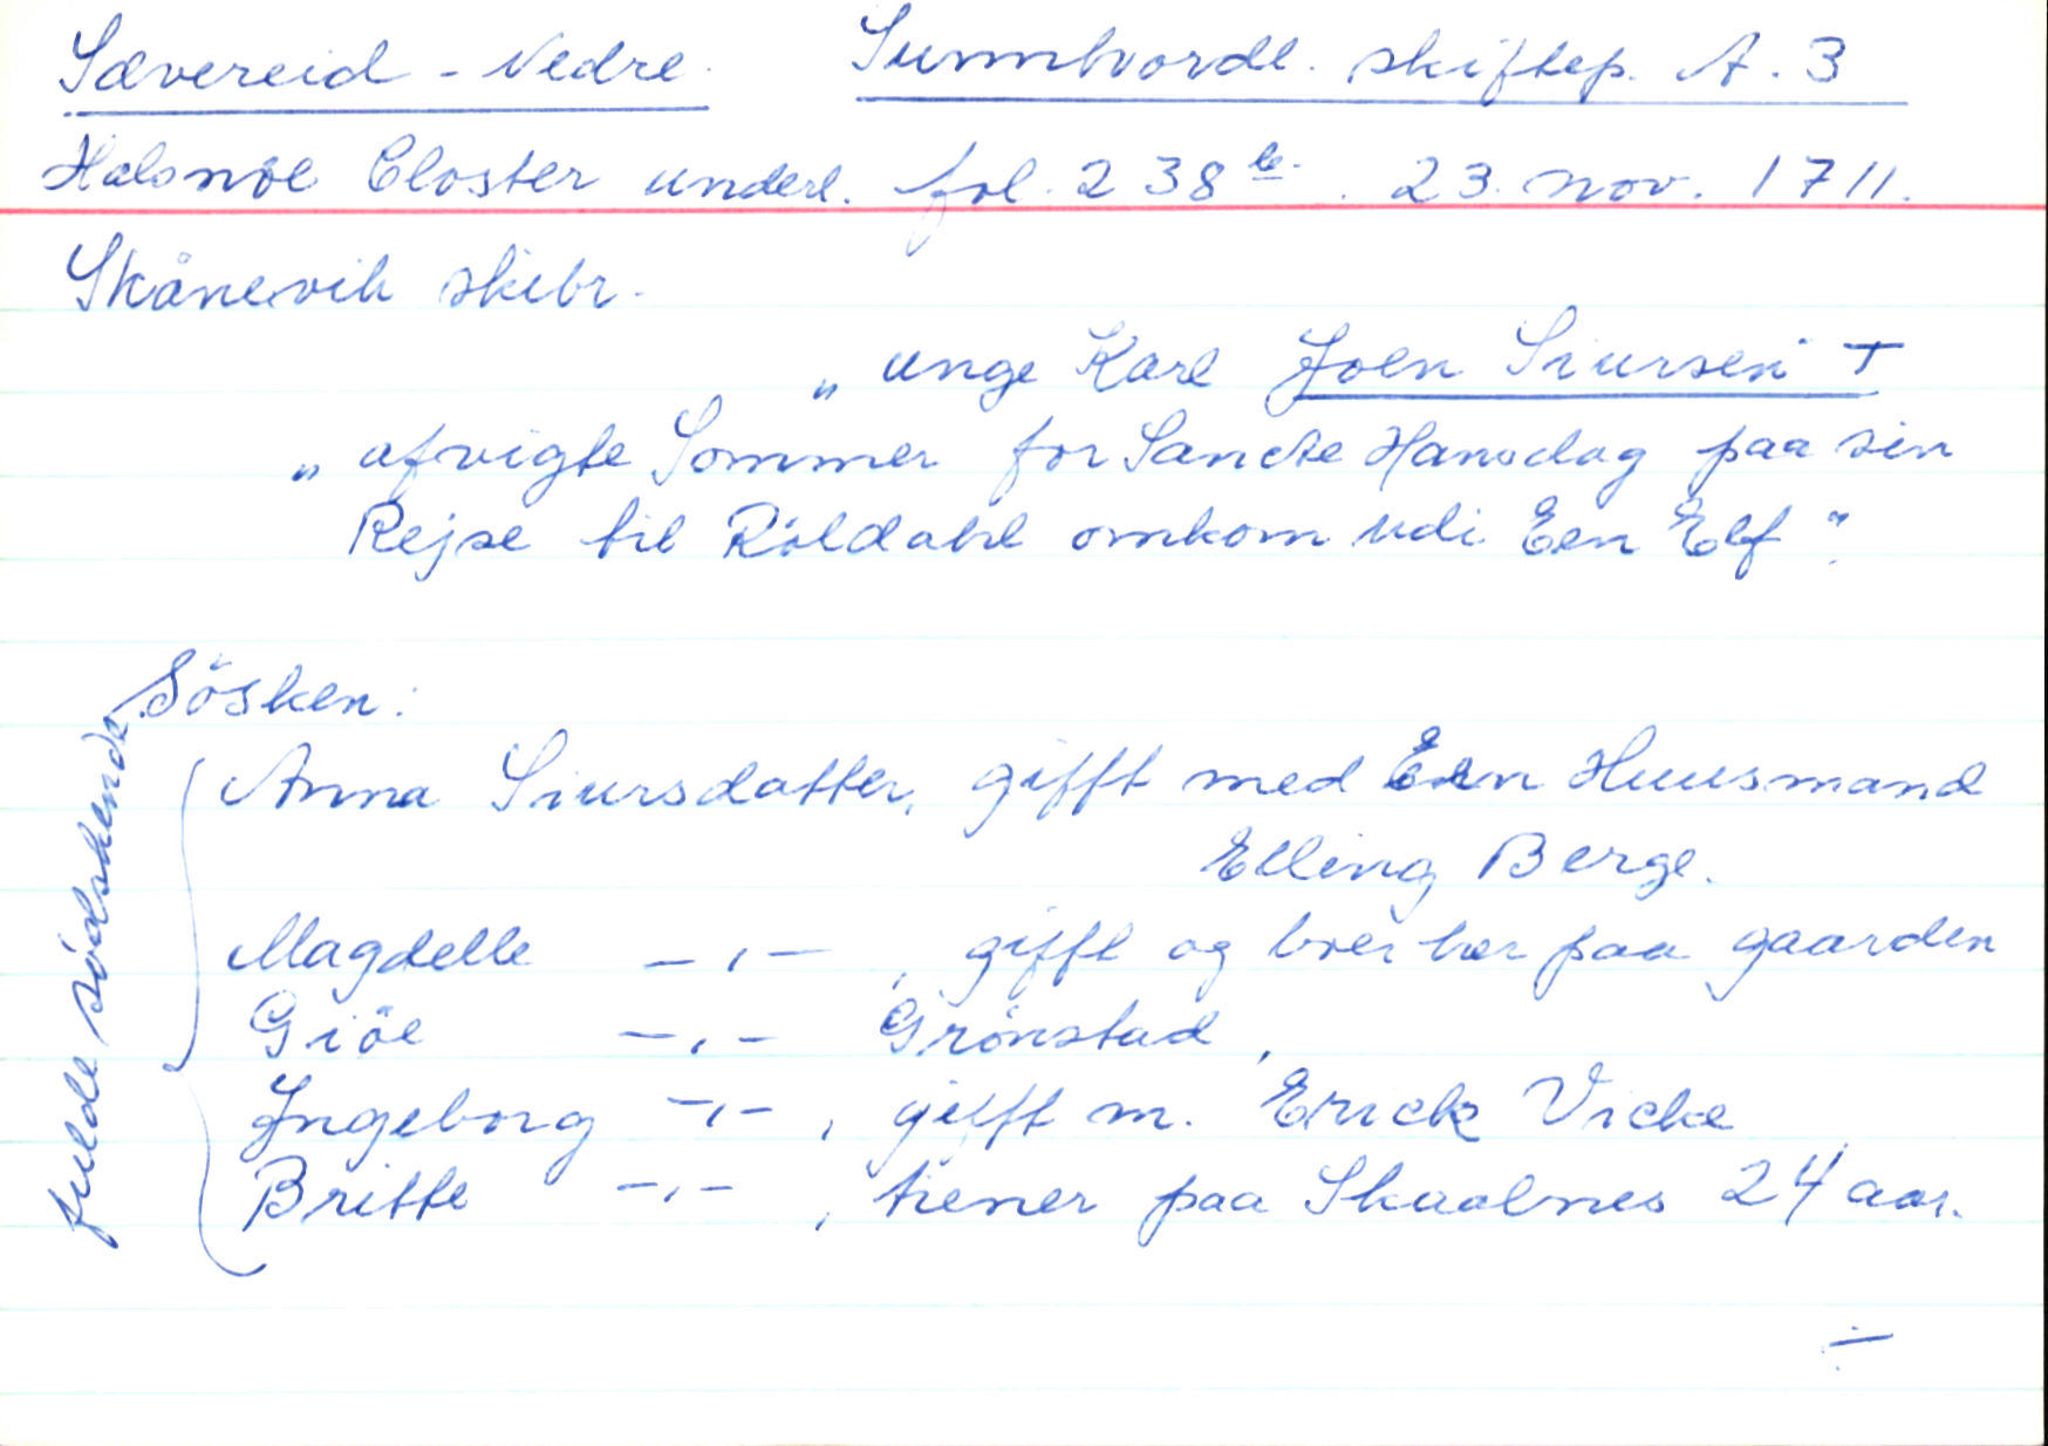 Sævereid - Nedre. Sunnhordl. skiftep. A. 3
Halsnöe Closter underl. fol. 238 b. 23. nov. 1711.
Skånevik skibr.
„ unge Karl Joen Siursen +
„ afvigte Sommer for Sancte Hansdag paa sin
Rejse til Röldahl omkom udi Een Elf“.
Sösken:
fulde södskende
Anna Siursdatter, gifft med Een Huusmand
Elling Berge.
Magdelle –„– , gifft og boer her paa gaarden
Giöe –„– Grönstad,
Ingeborg –„– , gifft m. Erick Vicke
Britte –„– , tiener paa Skaalnes 24 aar.
÷